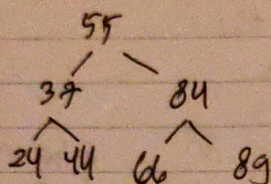 55
37 84
24 44 66 89